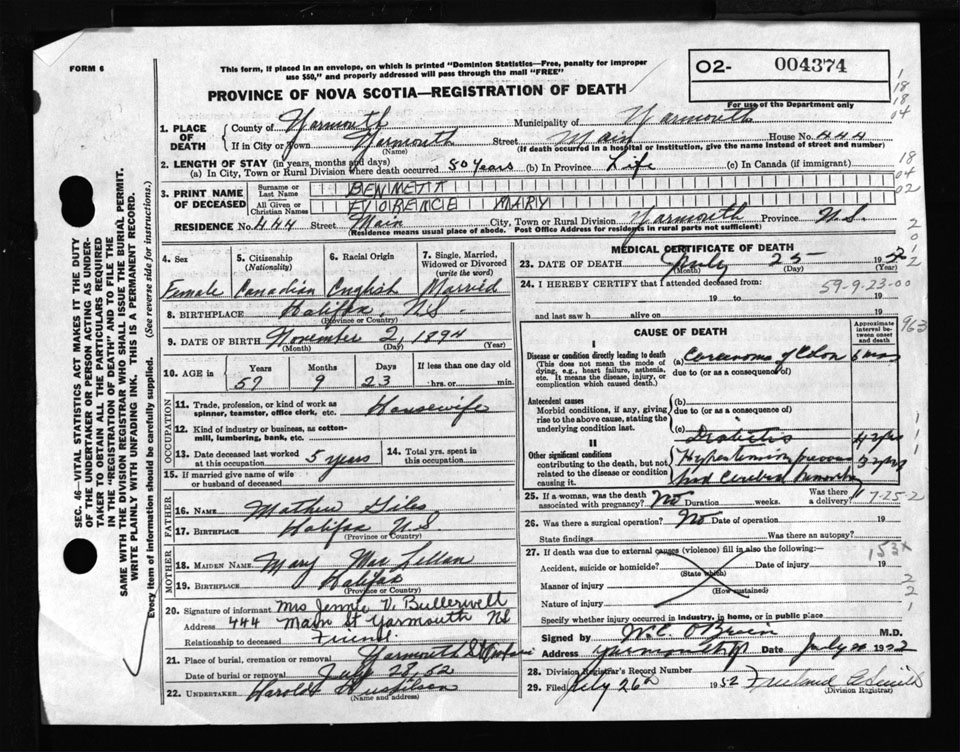 FORM 6
This form, if placed in an envelope, on which is printed "Dominion Statistics—Free, penalty for improper
use $50," and properly addressed will pass through the mail "FREE"
O2- 004374
For use of the Department only
PROVINCE OF NOVA SCOTIA—REGISTRATION OF DEATH
1. PLACE OF DEATH
County of Yarmouth Municipality of Yarmouth
If in City or Town Yarmouth Street Main House No. 444
(Name) (If death occurred in a hospital or institution, give the name instead of street and number)
2. LENGTH OF STAY (in years, months and days)
(a) In City, Town or Rural Division where death occurred 50 years (b) In Province Life (c) In Canada (if immigrant)
3. PRINT NAME OF DECEASED
Surname or Last Name BENNETT
All Given or Christian Names FLORENCE MARY
RESIDENCE No. 444 Street Main City, Town or Rural Division Yarmouth Province N.S.
(Residence means usual place of abode. Post Office Address for residents in rural parts not sufficient)
4. Sex 5. Citizenship (Nationality) 6. Racial Origin 7. Single, Married, Widowed or Divorced (write the word)
Female Canadian English Married
8. BIRTHPLACE Halifax N.S.
(Province or Country)
9. DATE OF BIRTH November 2, 1894
(Month) (Day) (Year)
10. AGE in Years Months Days If less than one day old
57 9 23 hrs. or min.
OCCUPATION
11. Trade, profession, or kind of work as spinner, teamster, office clerk, etc. Housewife
12. Kind of industry or business, as cotton-mill, lumbering, bank, etc.
13. Date deceased last worked at this occupation 5 years 14. Total yrs. spent in this occupation
15. If married give name of wife or husband of deceased
FATHER
16. Name Mathew Giles
17. Birthplace Halifax N.S
(Province or Country)
MOTHER
18. MAIDEN NAME Mary Mac Lellan
19. BIRTHPLACE Halifax
(Province or Country)
20. Signature of informant Mrs Jennie V. Bullerwell
Address 444 Main St Yarmouth NS
Relationship to deceased Friend.
21. Place of burial, cremation or removal Yarmouth
Date of burial or removal July 28, 52
22. UNDERTAKER Harold
(Name and address)
MEDICAL CERTIFICATE OF DEATH
23. DATE OF DEATH July 25 1952
(Month) (Day) (Year)
24. I HEREBY CERTIFY that I attended deceased from:
59-9-23-00
19 to 19
and last saw h alive on 19
CAUSE OF DEATH
Approximate interval between onset and death
I
Disease or condition directly leading to death
(This does not mean the mode of dying, e.g., heart failure, asthenia, etc. It means the disease, injury, or complication which caused death.)
(a) Carcinoma of Colon 6 mos
due to (or as a consequence of)
Antecedent causes
Morbid conditions, if any, giving rise to the above cause, stating the underlying condition last.
(b)
due to (or as a consequence of)
(c)
II
Other significant conditions
contributing to the death, but not related to the disease or condition causing it.
Diabetis 4 yrs
Hypertension 3 yrs
and Cerebral
25. If a woman, was the death associated with pregnancy? No Duration weeks. Was there a delivery? 7-25-2
26. Was there surgical operation? No Date of operation 19
State findings Was there an autopsy?
27. If death was due to external causes (violence) fill in also the following:
Accident, suicide or homicide? Date of injury 19
(State which)
Manner of injury
(How sustained)
Nature of injury
Specify whether injury occurred in industry, in home, or in public place
Signed by W.C. O'Brien M.D.
Address Yarmouth NS Date July 1952
28. Division Registrar's Record Number
29. Filed July 26th 1952
(Division Registrar)
SEC. 46—VITAL STATISTICS ACT MAKES IT THE DUTY
OF THE UNDERTAKER OR PERSON ACTING AS UNDER-
TAKER TO OBTAIN ALL THE PARTICULARS REQUIRED
IN THE "REGISTRATION OF DEATH" AND TO FILE THE
SAME WITH THE DIVISION REGISTRAR WHO SHALL ISSUE THE BURIAL PERMIT.
WRITE PLAINLY WITH UNFADING INK. THIS IS A PERMANENT RECORD.
Every item of information should be carefully supplied. (See reverse side for instructions.)
1
18
18
04
18
04
02
2
0
1
2
963
1
1
1
153X
2
2
1